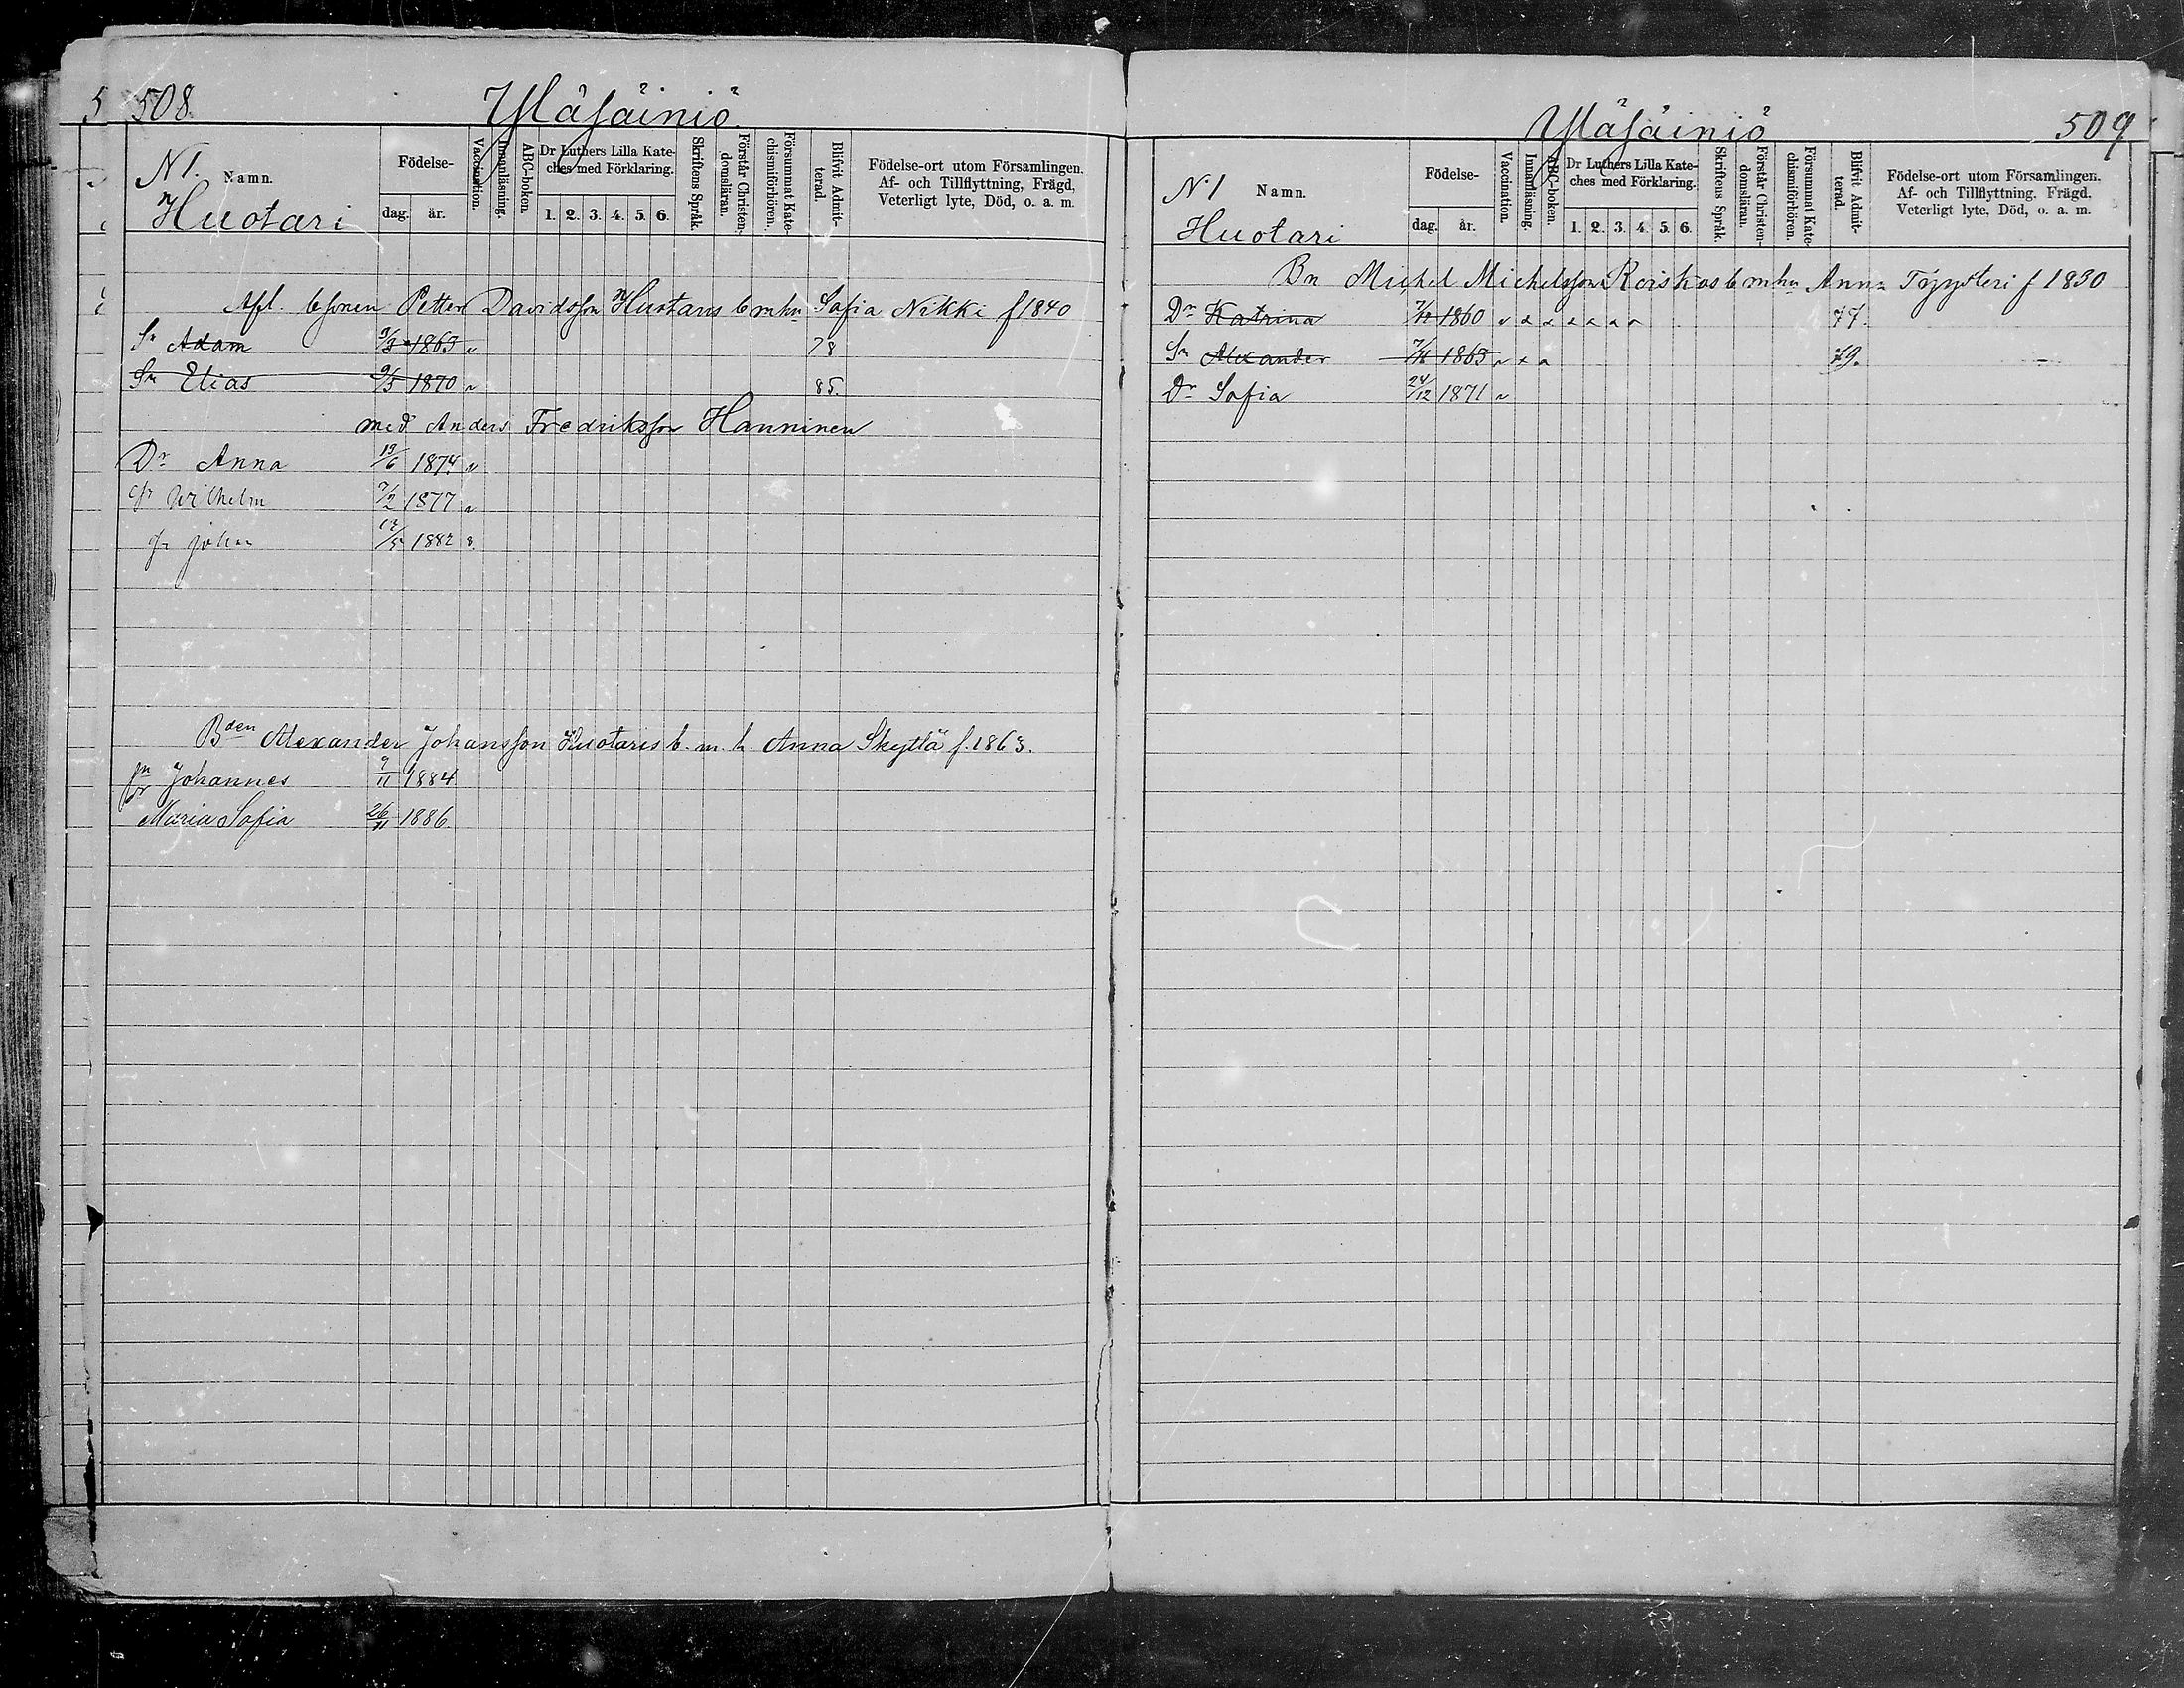 508.
Yläsäiniö
N 1.
Namn.
Huotari
Födelse-
dag. år.
Vaccination.
Innanläsning.
ABC-boken.
Dr Luthers Lilla Kate-
ches med Förklaring.
1. 2. 3. 4. 5. 6.
Skriftens Språk.
Förstår Christen-
domsläran.
Försummat Kate-
chismiförhören.
Blifvit Admit-
terad.
Födelse-ort utom Församlingen.
Af- och Tillflyttning, Frägd,
Veterligt lyte, Död, o. a. m.
Afl. bsonen Petter Davidsson Huotaris b m hu Sofia Nikki f 1840
Sn Adam 1863 78
Sn Elias 9/5 1870 85.
med Anders Fredriksson Hanninen
Dr Anna 19/6 1874
Sn Wilhelm 7/2 1877
Sn Johan 1882
Bden Alexander Johansson Huotaris b. m. h. Anna Skyttä f. 1863.
Sn Johannes 9/11 1884.
Maria Sofia 26/11 1886.
Yläsäiniö
509
N 1
Namn.
Huotari
Födelse-
dag. år.
Vaccination.
Innanläsning.
ABC-boken.
Dr Luthers Lilla Kate-
ches med Förklaring.
1. 2. 3. 4. 5. 6.
Skriftens Språk.
Förstår Christen-
domsläran.
Försummat Kate-
chismiförhören.
Blifvit Admit-
terad.
Födelse-ort utom Församlingen.
Af- och Tillflyttning. Frägd.
Veterligt lyte, Död, o. a. m.
Bn Michel Michelsson Roiskos b m hu Anna Typpteri f 1830
Dr Katrina 7/12 1860 77.
Sn Alexander 1863 79.
Dr Sofia 24/12 1871